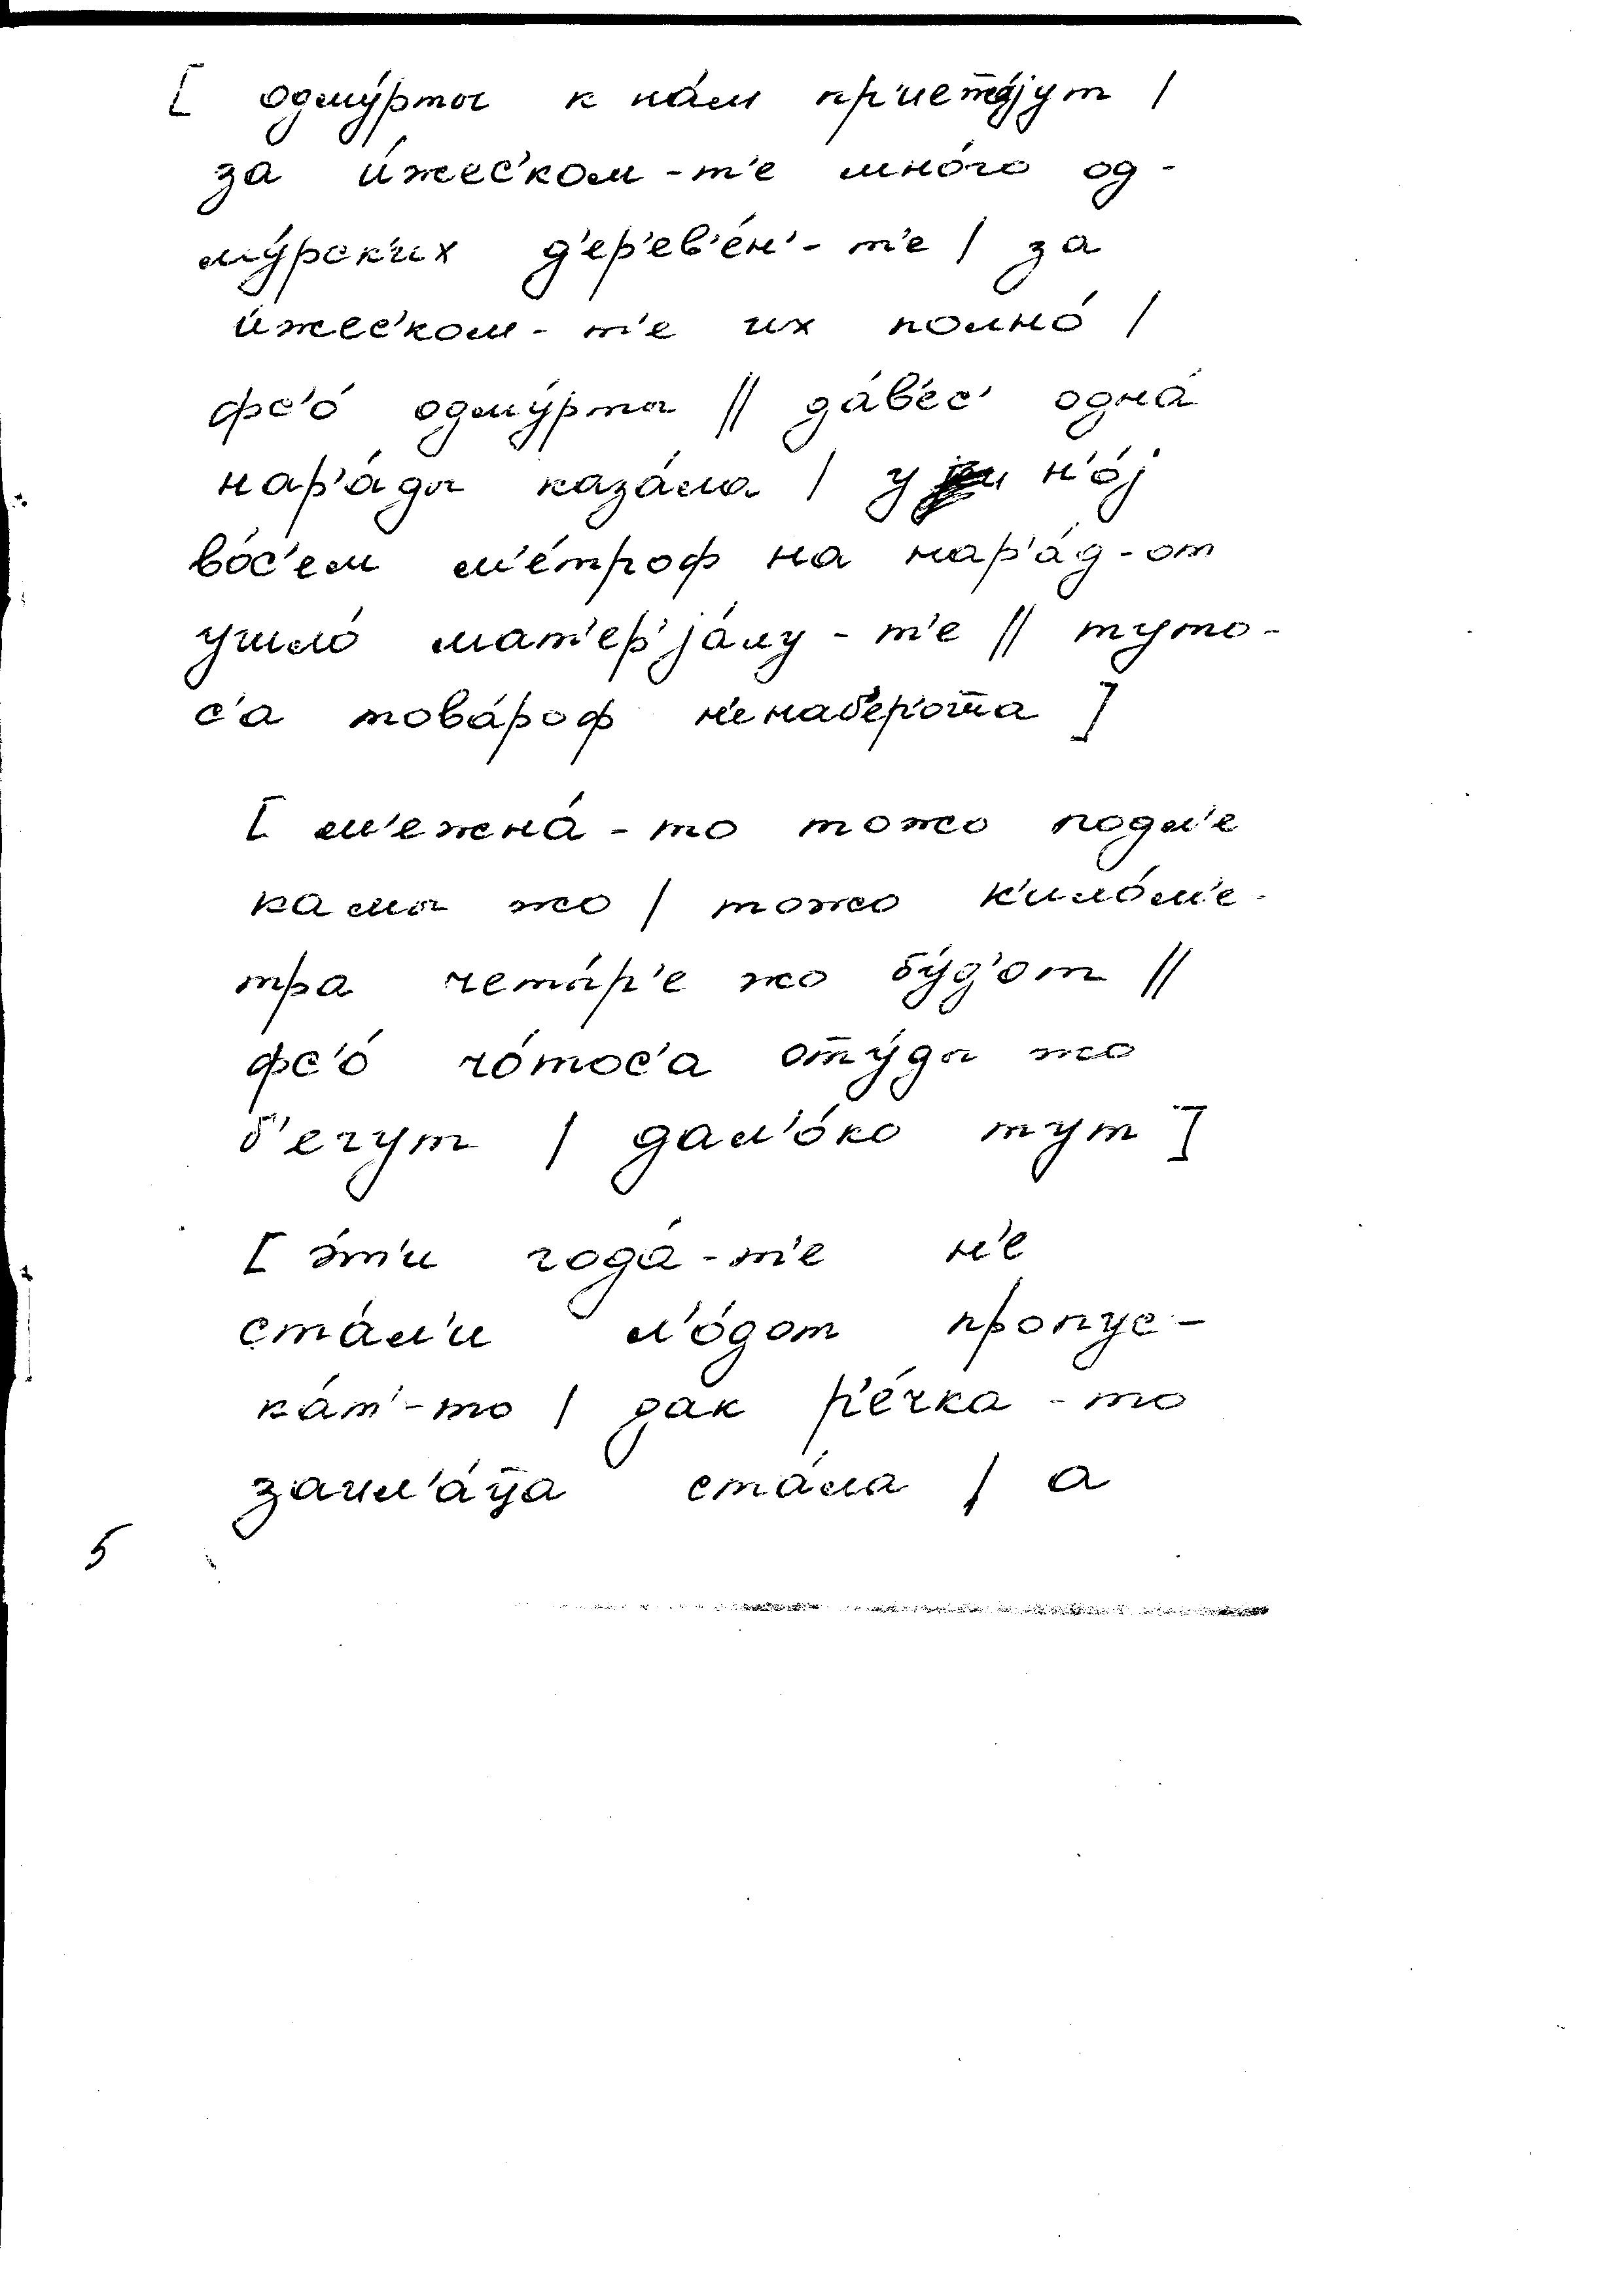 [ одму́рты к на́м пр'ист̄а́јут /
за и́жес'ком-т'е мно́го од-
му́рск'их д'ер'ев'е́н'-т'е / за
и́жес'ком-т'е их полно́ /
фс'о́ одму́рты // да́в'ес' одна́
нар'а́ды каза́ла / у н'о́ј
во́с'ем м'е́троф на нар'а́д-от
ушло́ мат'ер'ја́лу-т'е // туто-
с'а това́роф н'енабер'от̄а ]
[ м'ежна́-то тожо подл'е
камы жо / тожо к'ило́м'е-
тра четы́р'е жо бу́д'от //
фс'о́ чо́тос'а от̄у́ды жо
б'егут / дал'о́ко тут ]
[ э́т'и года́-т'е н'е
ста́л'и л'о́дот пропус-
ка́т'-то / дак р'е́чка-то
заил'а́ц̄а ста́ла / а
5